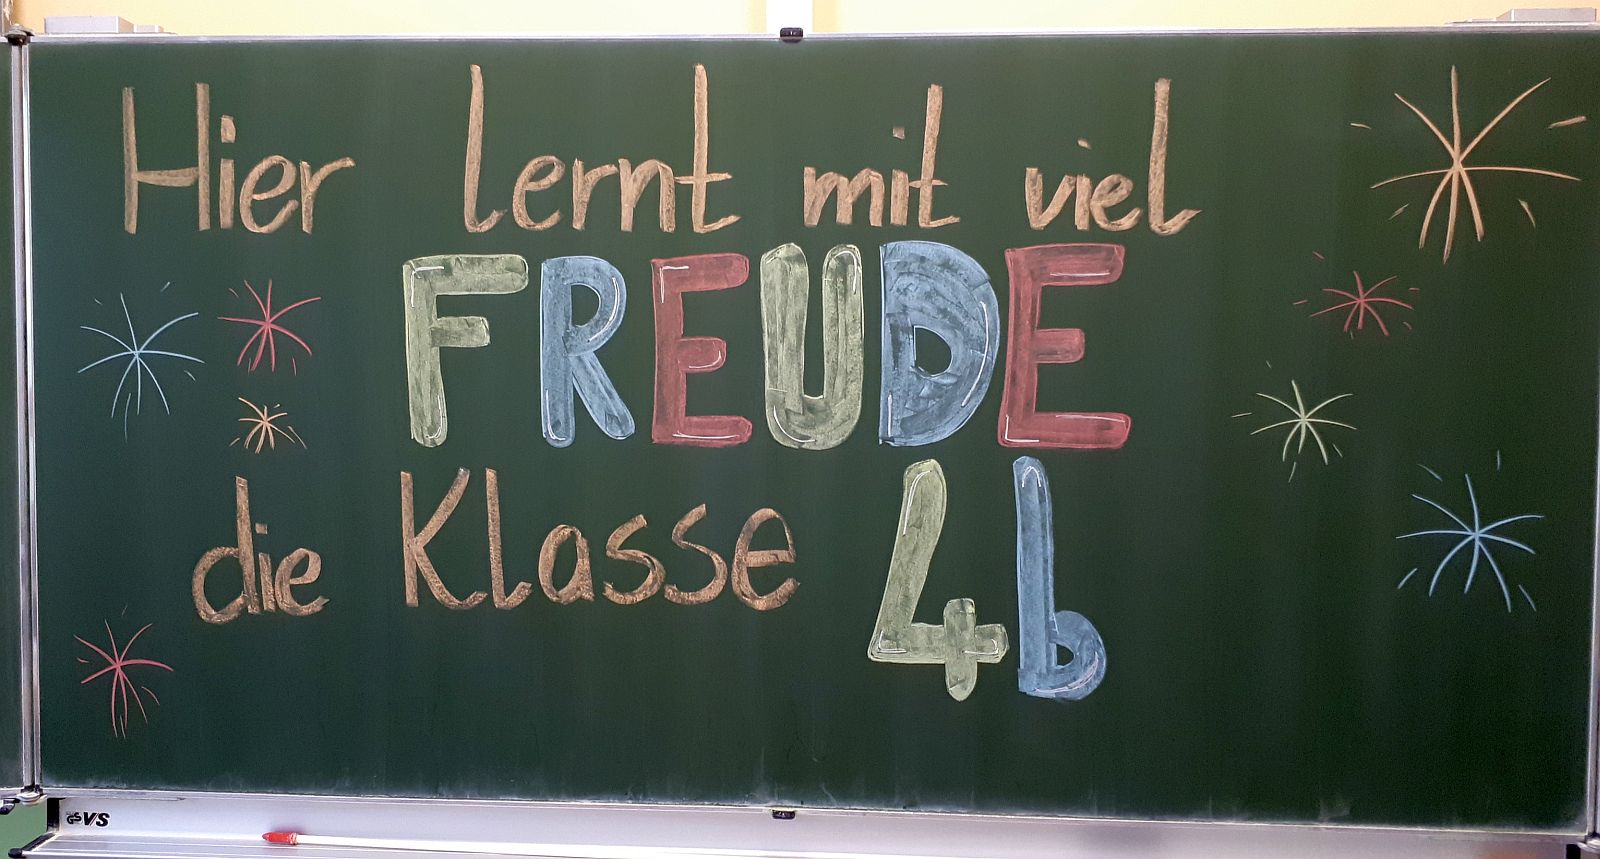 Hier lernt mit viel
FREUDE
die Klasse 4b
GS VS